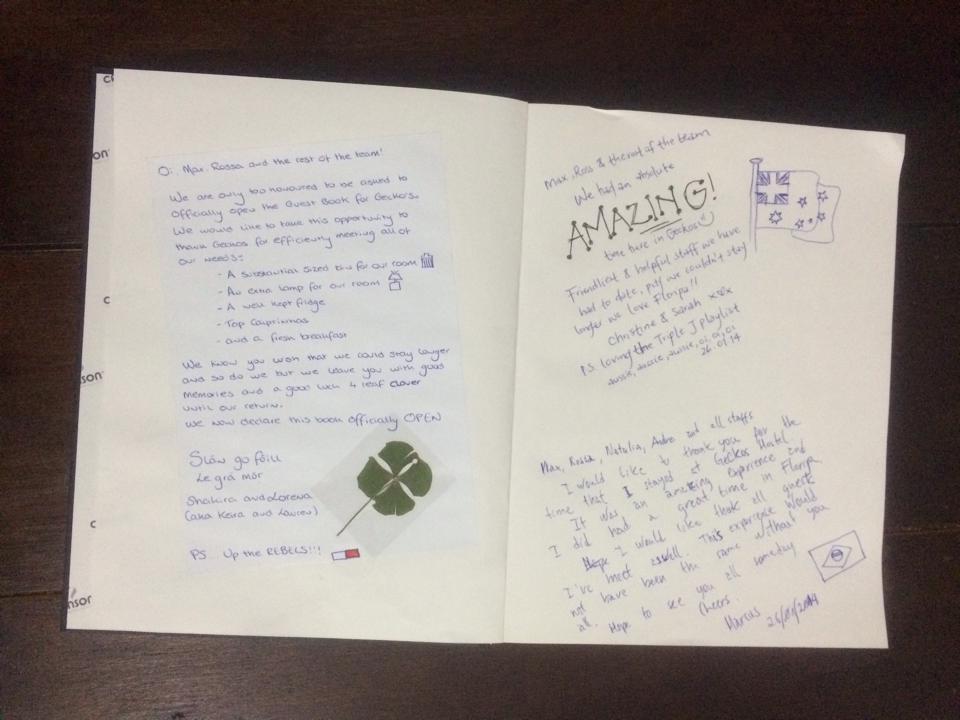 Oi, Max, Rossa and the rest of the team!
We are only too honoured to be asked to
Officially open the Guest Book for Gecko's.
We would like to take this opportunity to
thank Geckos for efficiently meeting all of
our needs:
- A substantial sized bin for our room
- An extra lamp for our room
- A well kept fridge
- Top Caiprinhas
- and a fresh breakfast
We know you wish that we could stay longer
and so do we but we leave you with good
memories and a good luck 4 leaf clover
until our return.
We now declare this book officially OPEN
Slán go fóill
Le grá mór
Shakira and Lorena
(aka Keira and Lauren)
PS... Up the REBELS!!!
Max, Ross & the rest of the team
We had an absolute
AMAZING!
time here in Geckos!!
Friendliest & helpful staff we have
had to date, pity we couldn't stay
longer we love Floripa!!
Christine & Sarah xox
P.S. loving the Triple J Playlist
Aussie, aussie, aussie, oi, oi, oi
26.01.14
Max, Rossa, Natalia, Andre and all staffs
I would like to thank you for the
time that I stayed at Geckos Hostel.
It was an amazing experience and
I did had a great time in Floripa
I would like thank all guest
I've meet aswell. This experience would
not have been the same without you
all. Hope to see you all someday
Cheers.
Marcus 26/01/2014
on
son
nsor